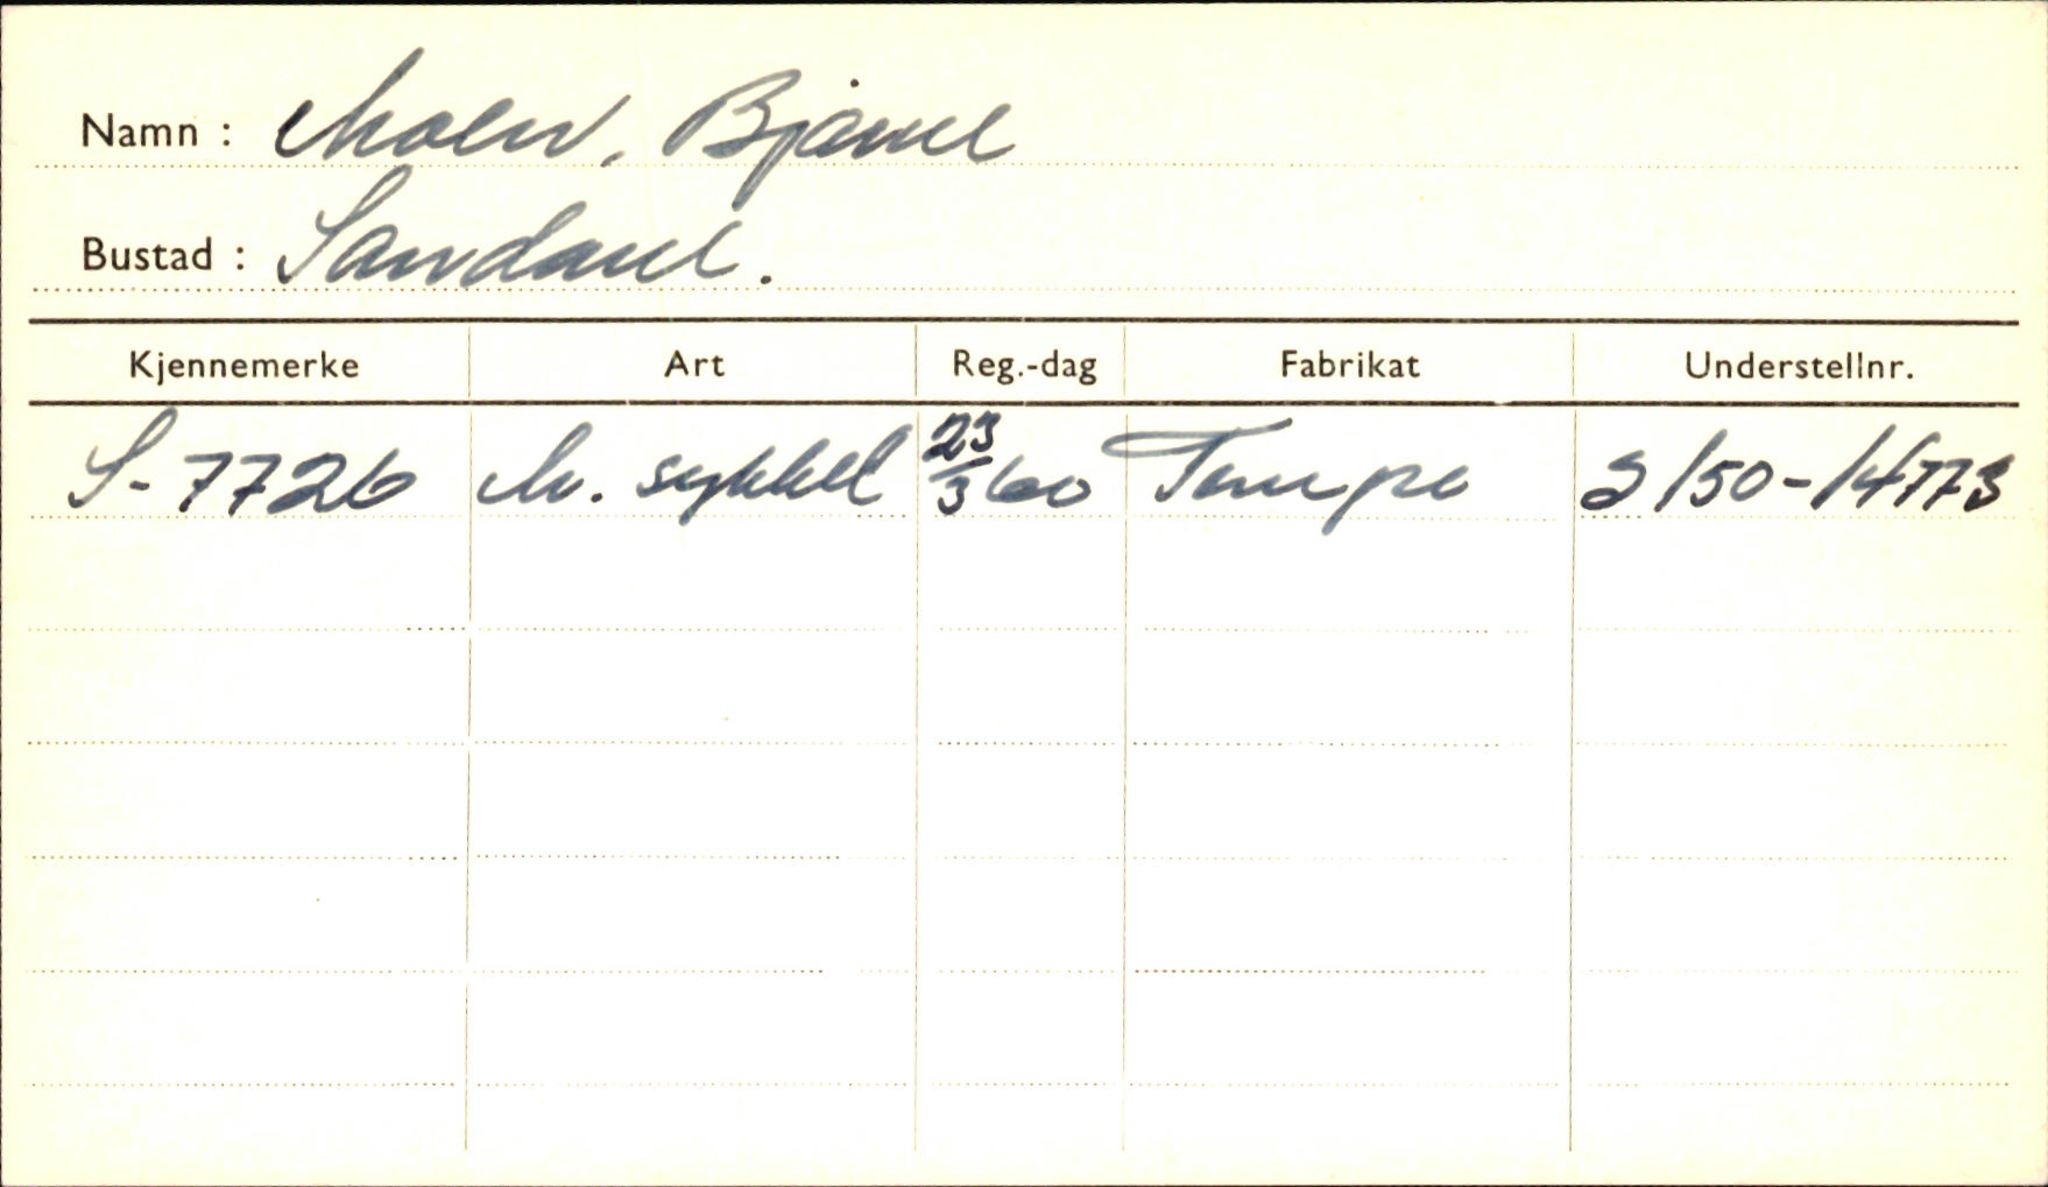 Namn : Moen, Bjarne
Bustad : Sandane.
Kjennemerke Art Reg.-dag Fabrikat Understellnr.
S-7726 M. sykkel 23/3 60 Tempo 2150-14773